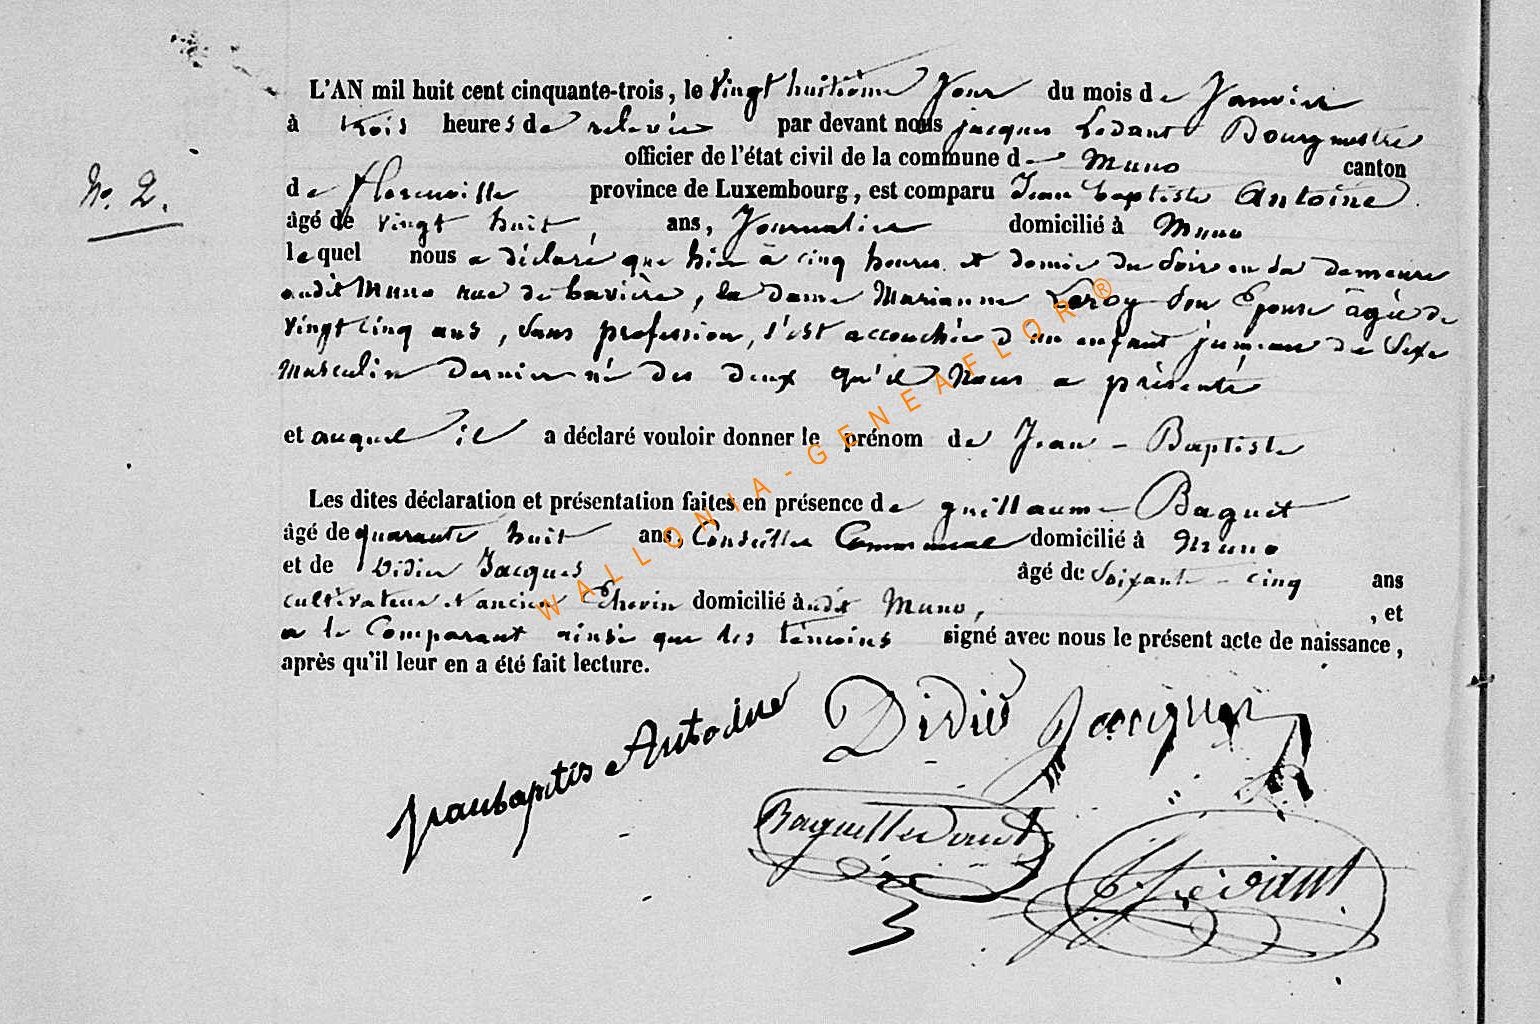 L'AN mil huit cent cinquante-trois, le vingt huitième Jour du mois de Janvier
à trois heures de relevée par devant nous jacques Ledant Bourgmestre
officier de l'état civil de la commune de Muno canton
No. 2.
de florenville province de Luxembourg, est comparu Jean baptiste Antoine
âgé de vingt huit, ans, Journalier domicilié à Muno
lequel nous a déclaré que hier à cinq heures et demie du Soir en Sa demeure
audit Muno rue de bavière, la dame Marianne Leroy Son Epouse âgée de
vingt cinq ans, Sans profession, s'est accouchée d'un enfant jumeau de Sexe
Masculin Dernier né des deux qu'il Nous a présenté
et auquel il a déclaré vouloir donner le prénom de Jean - Baptiste
Les dites déclaration et présentation faites en présence de guillaume Baguet
âgé de quarante huit ans, Conseiller Communal domicilié à Muno
et de Didier Jacques âgé de Soixante - cinq ans
cultivateur et ancien Echevin domicilié àudit Muno, , et
a le Comparant ainsi que les témoins signé avec nous le présent acte de naissance,
après qu'il leur en a été fait lecture.
jeanbaptis Antoine
Didié Jacques
Baguet
Ledant
WALLONIA-GENEAFLOR®